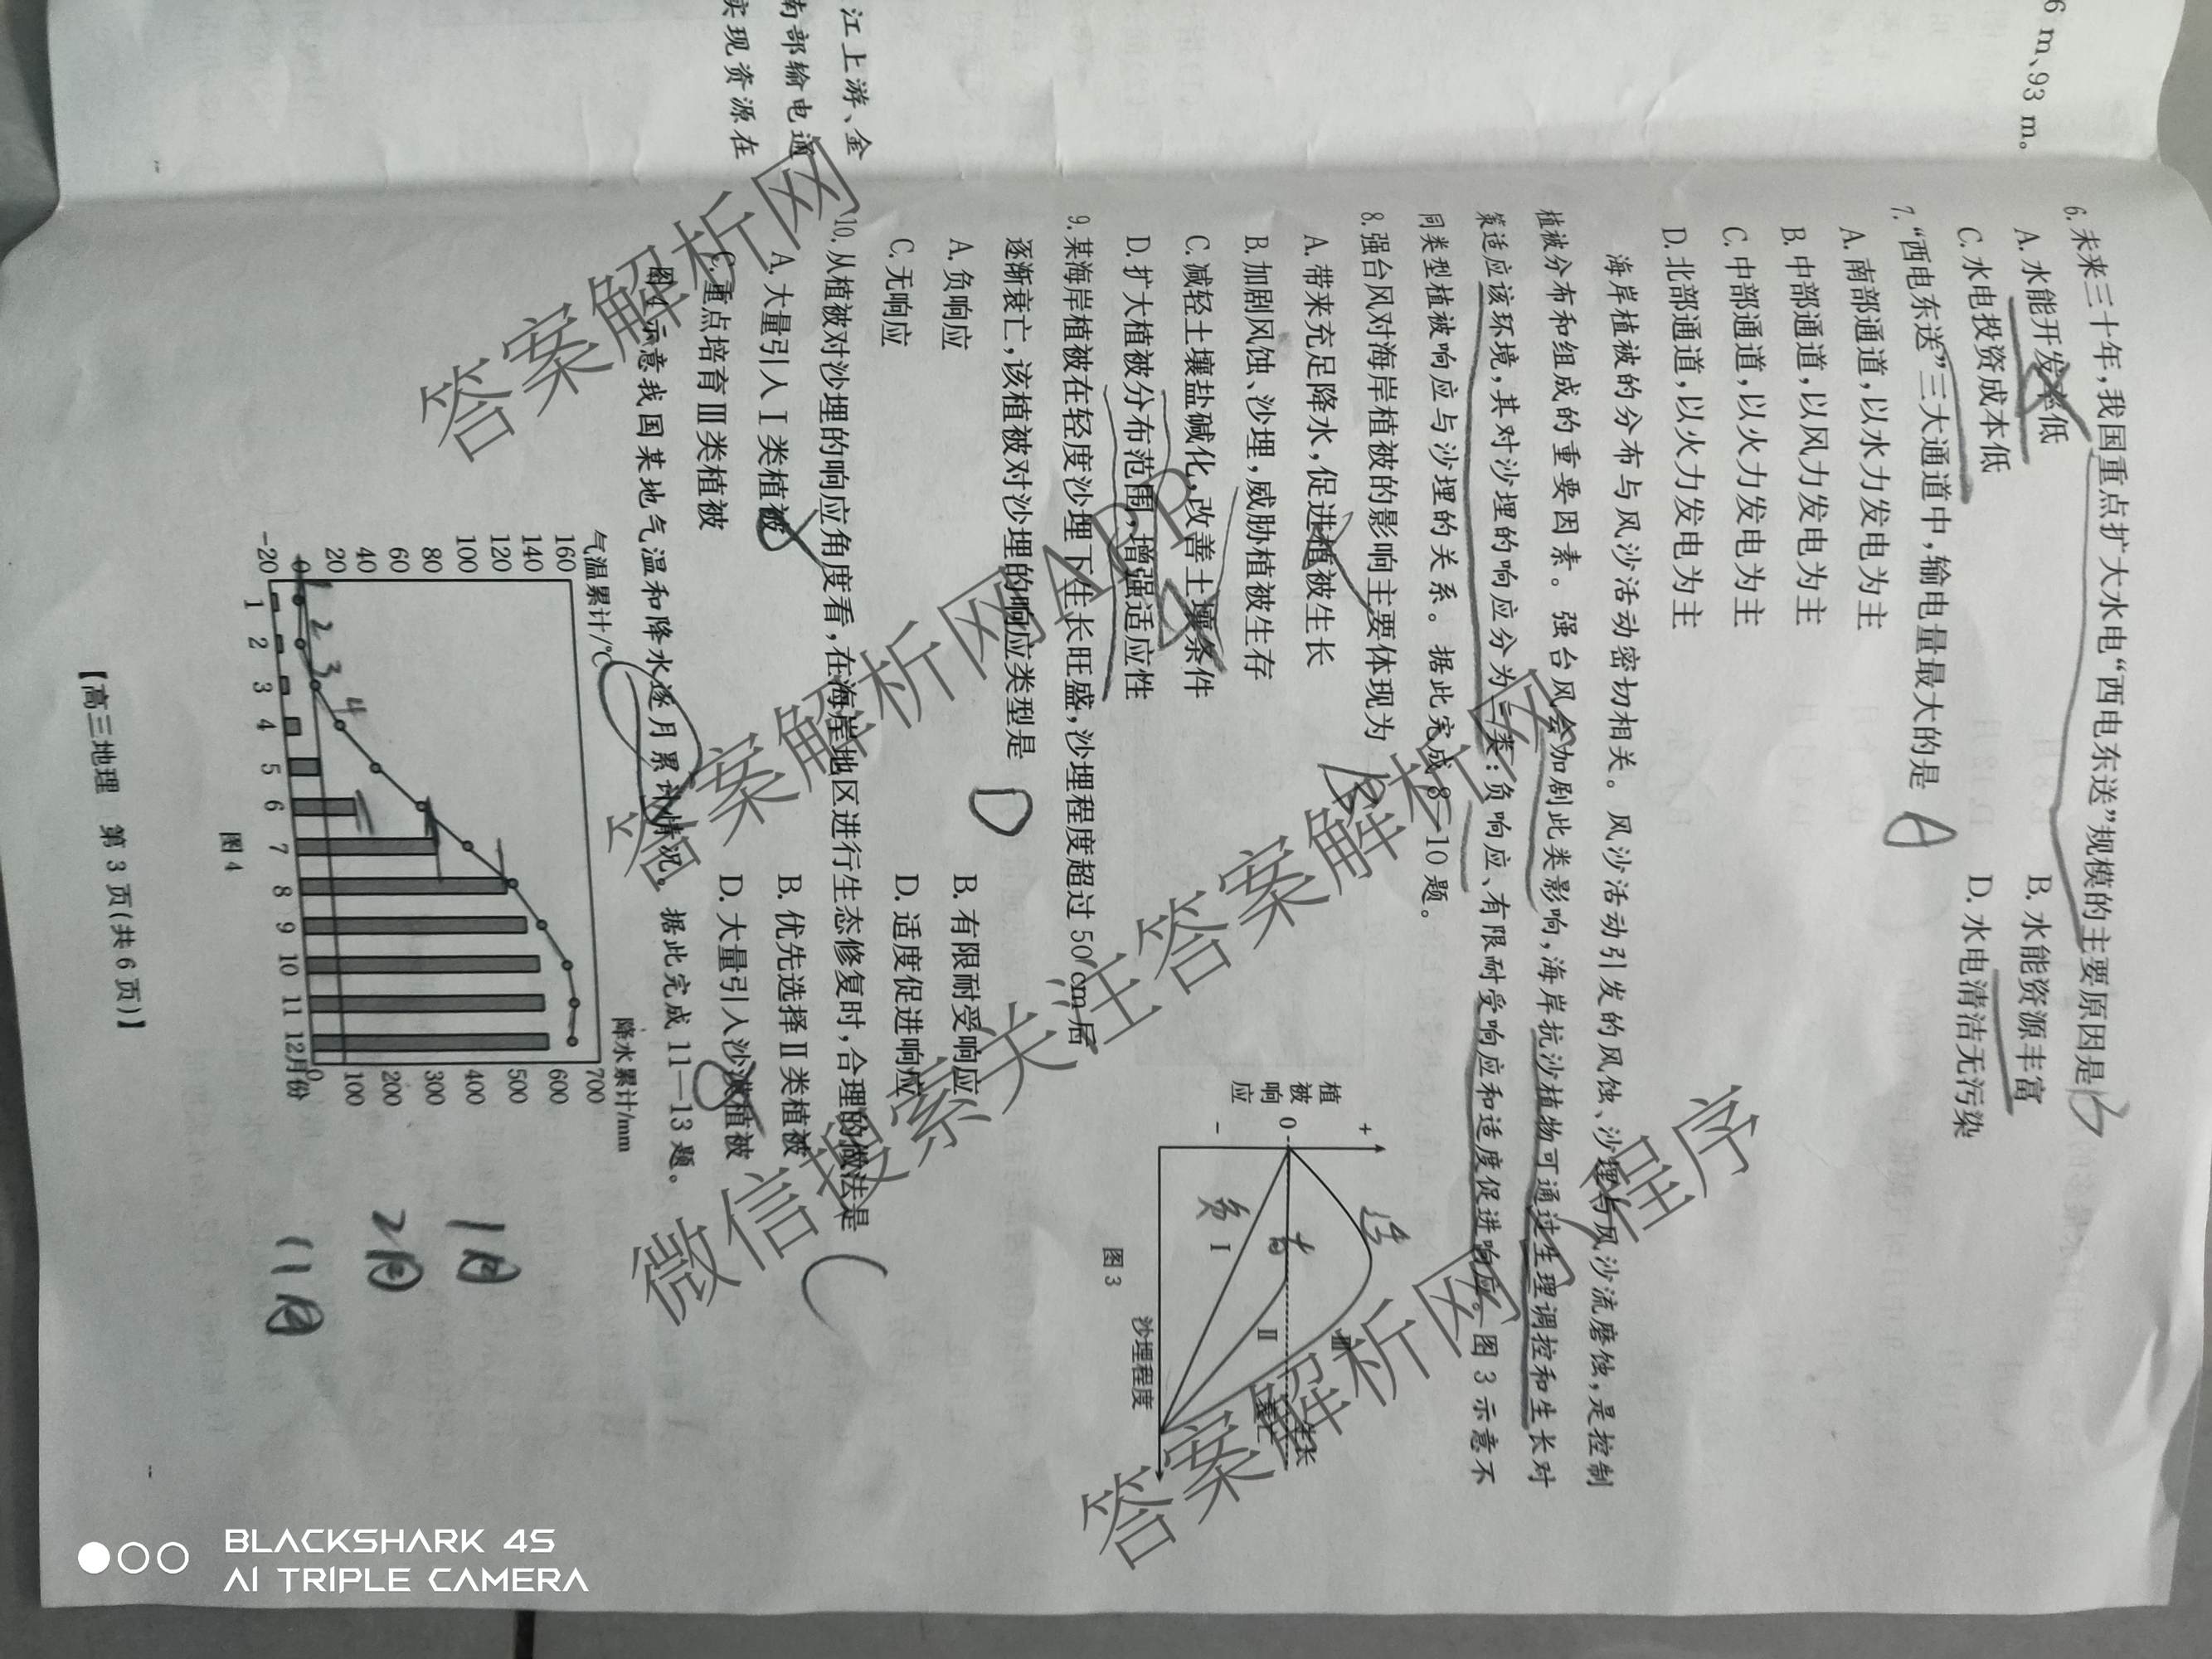 6 m、93 m。
江上游、金
南部输电通
实现资源在
6. 未来三十年,我国重点扩大水电“西电东送”规模的主要原因是
A. 水能开发率低
B. 水能资源丰富
C. 水电投资成本低
D. 水电清洁无污染
7. “西电东送”三大通道中,输电量最大的是 A
A. 南部通道,以水力发电为主
B. 中部通道,以风力发电为主
C. 中部通道,以火力发电为主
D. 北部通道,以火力发电为主
海岸植被的分布与风沙活动密切相关。风沙活动引发的风蚀、沙埋与风沙流磨蚀,是控制
植被分布和组成的重要因素。强台风会加剧此类影响,海岸抗沙植物可通过生理调控和生长对
策适应该环境,其对沙埋的响应分为三类:负响应、有限耐受响应和适度促进响应。图 3 示意不
同类型植被响应与沙埋的关系。据此完成 8—10 题。
8. 强台风对海岸植被的影响主要体现为
A. 带来充足降水,促进植被生长
B. 加剧风蚀、沙埋,威胁植被生存
C. 减轻土壤盐碱化,改善土壤条件
D. 扩大植被分布范围,增强适应性
植被响应
+
0
-
适
有
负
Ⅰ
Ⅱ
Ⅲ
生长
衰亡
沙埋程度
图 3
9. 某海岸植被在轻度沙埋下生长旺盛,沙埋程度超过 50 cm 后
逐渐衰亡,该植被对沙埋的响应类型是 D
A. 负响应
B. 有限耐受响应
C. 无响应
D. 适度促进响应
10. 从植被对沙埋的响应角度看,在海岸地区进行生态修复时,合理的做法是 C
A. 大量引入Ⅰ类植被
B. 优先选择Ⅱ类植被
C. 重点培育Ⅲ类植被
D. 大量引入沙漠植被
图 4 示意我国某地气温和降水逐月累计情况。据此完成 11—13 题。
气温累计/℃
降水累计/mm
160
140
120
100
80
60
40
20
0
-20
700
600
500
400
300
200
100
0
1 2 3 4
1 2 3 4 5 6 7 8 9 10 11 12月份
图 4
1月
2月
11月
【高三地理 第 3 页(共 6 页)】
答案解析网
答案解析网APP
微信搜索关注答案解析网小程序
答案解析网
BLACKSHARK 4S
AI TRIPLE CAMERA